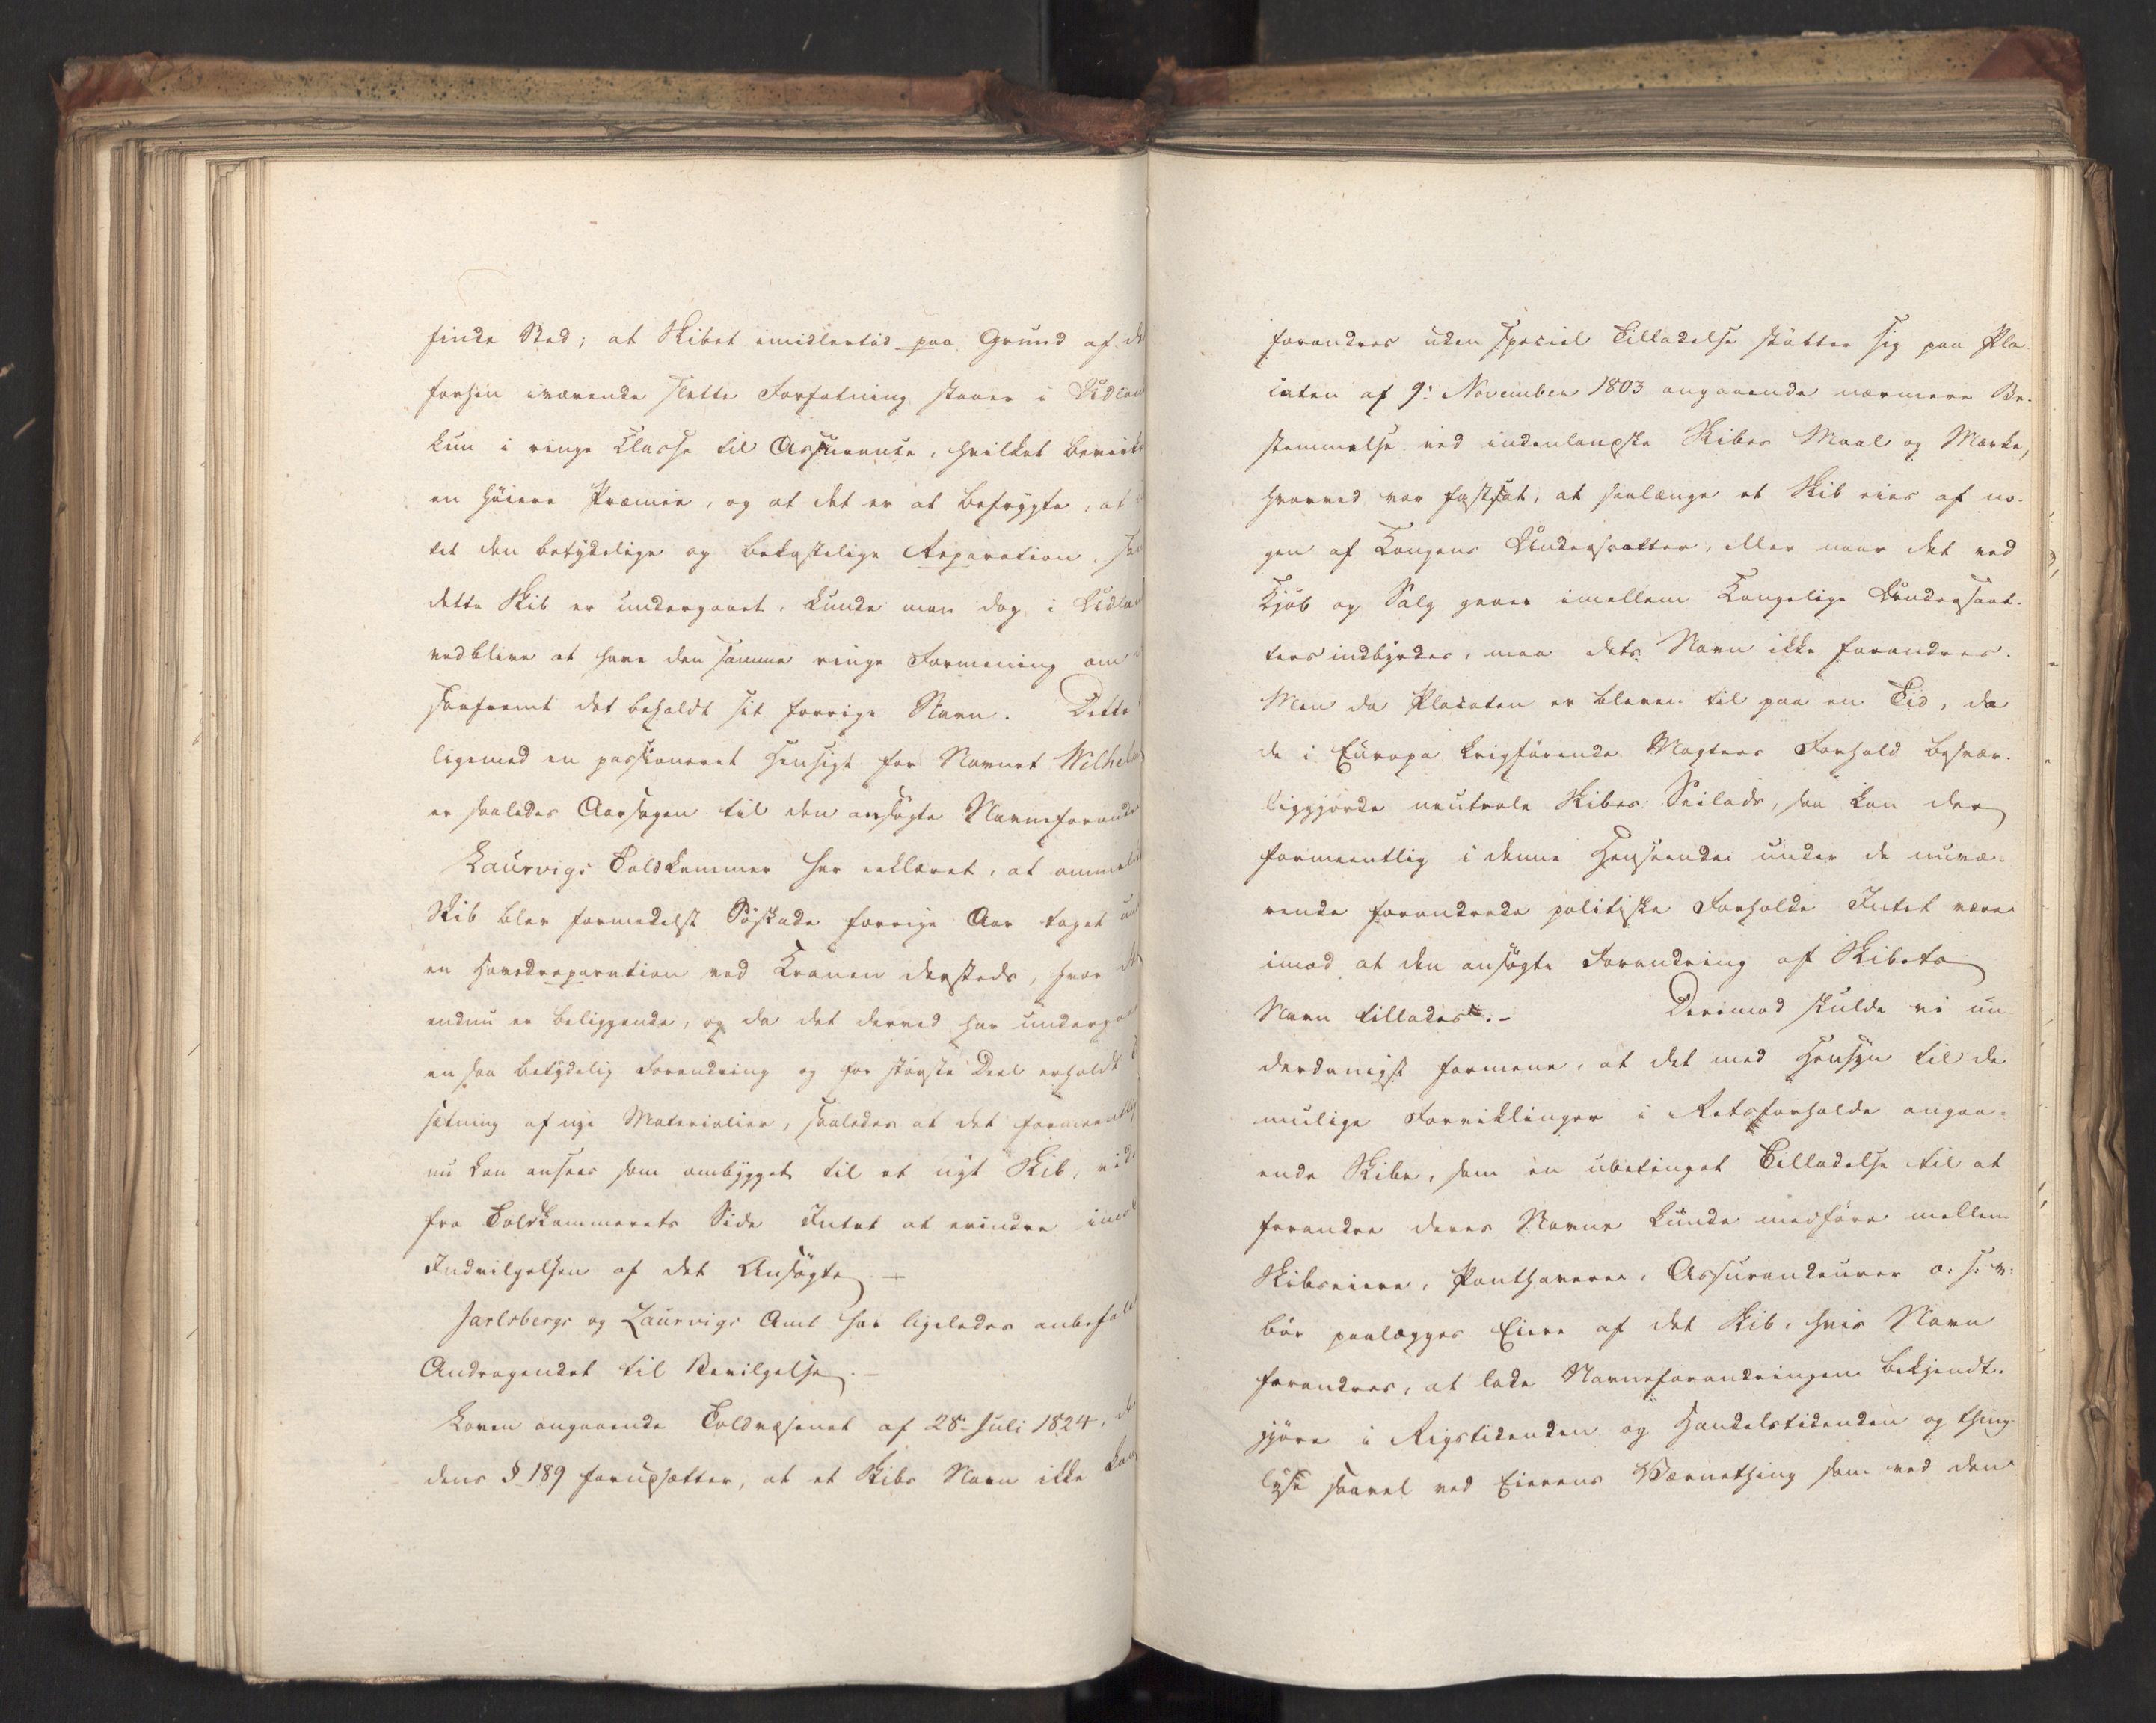 finde Sted; at Skibet imidlertid paa Grund af
forhen iværende slette Forfatning staaer i
kun i ringe Classe til Assurance, hvilket
en høiere Præmie, og at det er at befrygte, at
tet den betydelige og bekostelige Reparation,
dette Skib er undergaaet, kunde man dog i
vedblive at have den samme ringe Formening om
saafremt det beholdt sit forrige Navn. Dette
ligemed en passioneret Hensigt for Navnet
er saaledes Aarsagen til den ansøgte
Laurvigs Toldkammer har erklæret, at
Skib blev formedelst Søskade forrige Aar taget
en Hovedreparation ved Kranen dersteds, hvor
endnu er beliggende, og da det derved har
en saa betydelig Forandring og for største Deel erholdt
sætning af nye Materialier, saaledes at det
nu kan ansees som ombygget til et nyt Skib,
fra Toldkammerets Side Intet at erindre
Indvilgelsen af det Ansøgte. —
Jarlsbergs og Laurvigs Amt har ligeledes
Andragendet til Bevilgelse. —
Loven angaaende Toldvæsenet af 28de Juli 1824,
dens § 189 forudsætter, at et Skibs Navn ikke kan
forandres uden speciel Tilladelse støtter sig paa Pla-
caten af 9: November 1803 angaaende nærmere Be-
stemmelse ved indenlandske Skibes Maal og Mærke,
hvorved var fastsat, at saalænge et Skib eies af no-
gen af Kongens Undersaatter, eller naar det ved
Kjøb og Salg gaaer imellem Kongelige Undersaat-
ters indbyrdes, maa dets Navn ikke forandres.
Men da Placaten er bleven til paa en Tid, da
de i Europa krigførende Magters Forhold besvær-
liggjorde neutrale Skibes Seilads, saa kan der
formeentlig i denne Henseende under de nuvæ-
rende forandrede politiske Forholde Intet være
imod at den ansøgte Forandring af Skibets
Navn tillades. — Derimod skulde vi un-
derdanigst formene, at det med Hensyn til de
mulige Forviklinger i Retsforholde angaa-
ende Skibe, som en ubetinget Tilladelse til at
forandre deres Navne kunde medføre mellem
Skibseiere, Panthavere, Assurandeurer o: s: v:
bør paalægges Eiere af det Skib, hvis Navn
forandres, at lade Navneforandringen bekjendt-
gjøre i Rigstidenden og Handelstidenden og thing-
lyse saavel ved Eierens Værnething som ved den